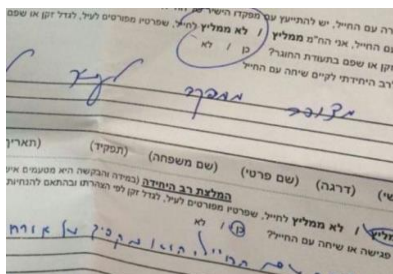 רה עם החייל, יש להתייעץ עם מפקדו הישיר
עם החייל, אני הח"מ ממליץ / לא ממליץ לחייל, שפרטיו מפורטים לעיל, לגדל זקן או שפם
זקן או שפם בתעודת החוגר? כן / לא
לרב היחידתי לקיים שיחה עם החייל
מצורף מכתב
שי) (דרגה) (שם פרטי) (שם משפחה) (תפקיד) (תאריך
המלצת רב היחידה (במידה והבקשה היא מטעמים
מליץ / לא ממליץ לחייל, שפרטיו מפורטים לעיל, לגדל זקן לפי הצהרתו ובהתאם להנחיות
פגישה או שיחה עם החייל? כן / לא
עם החייל, הוא מקפיד על אורח